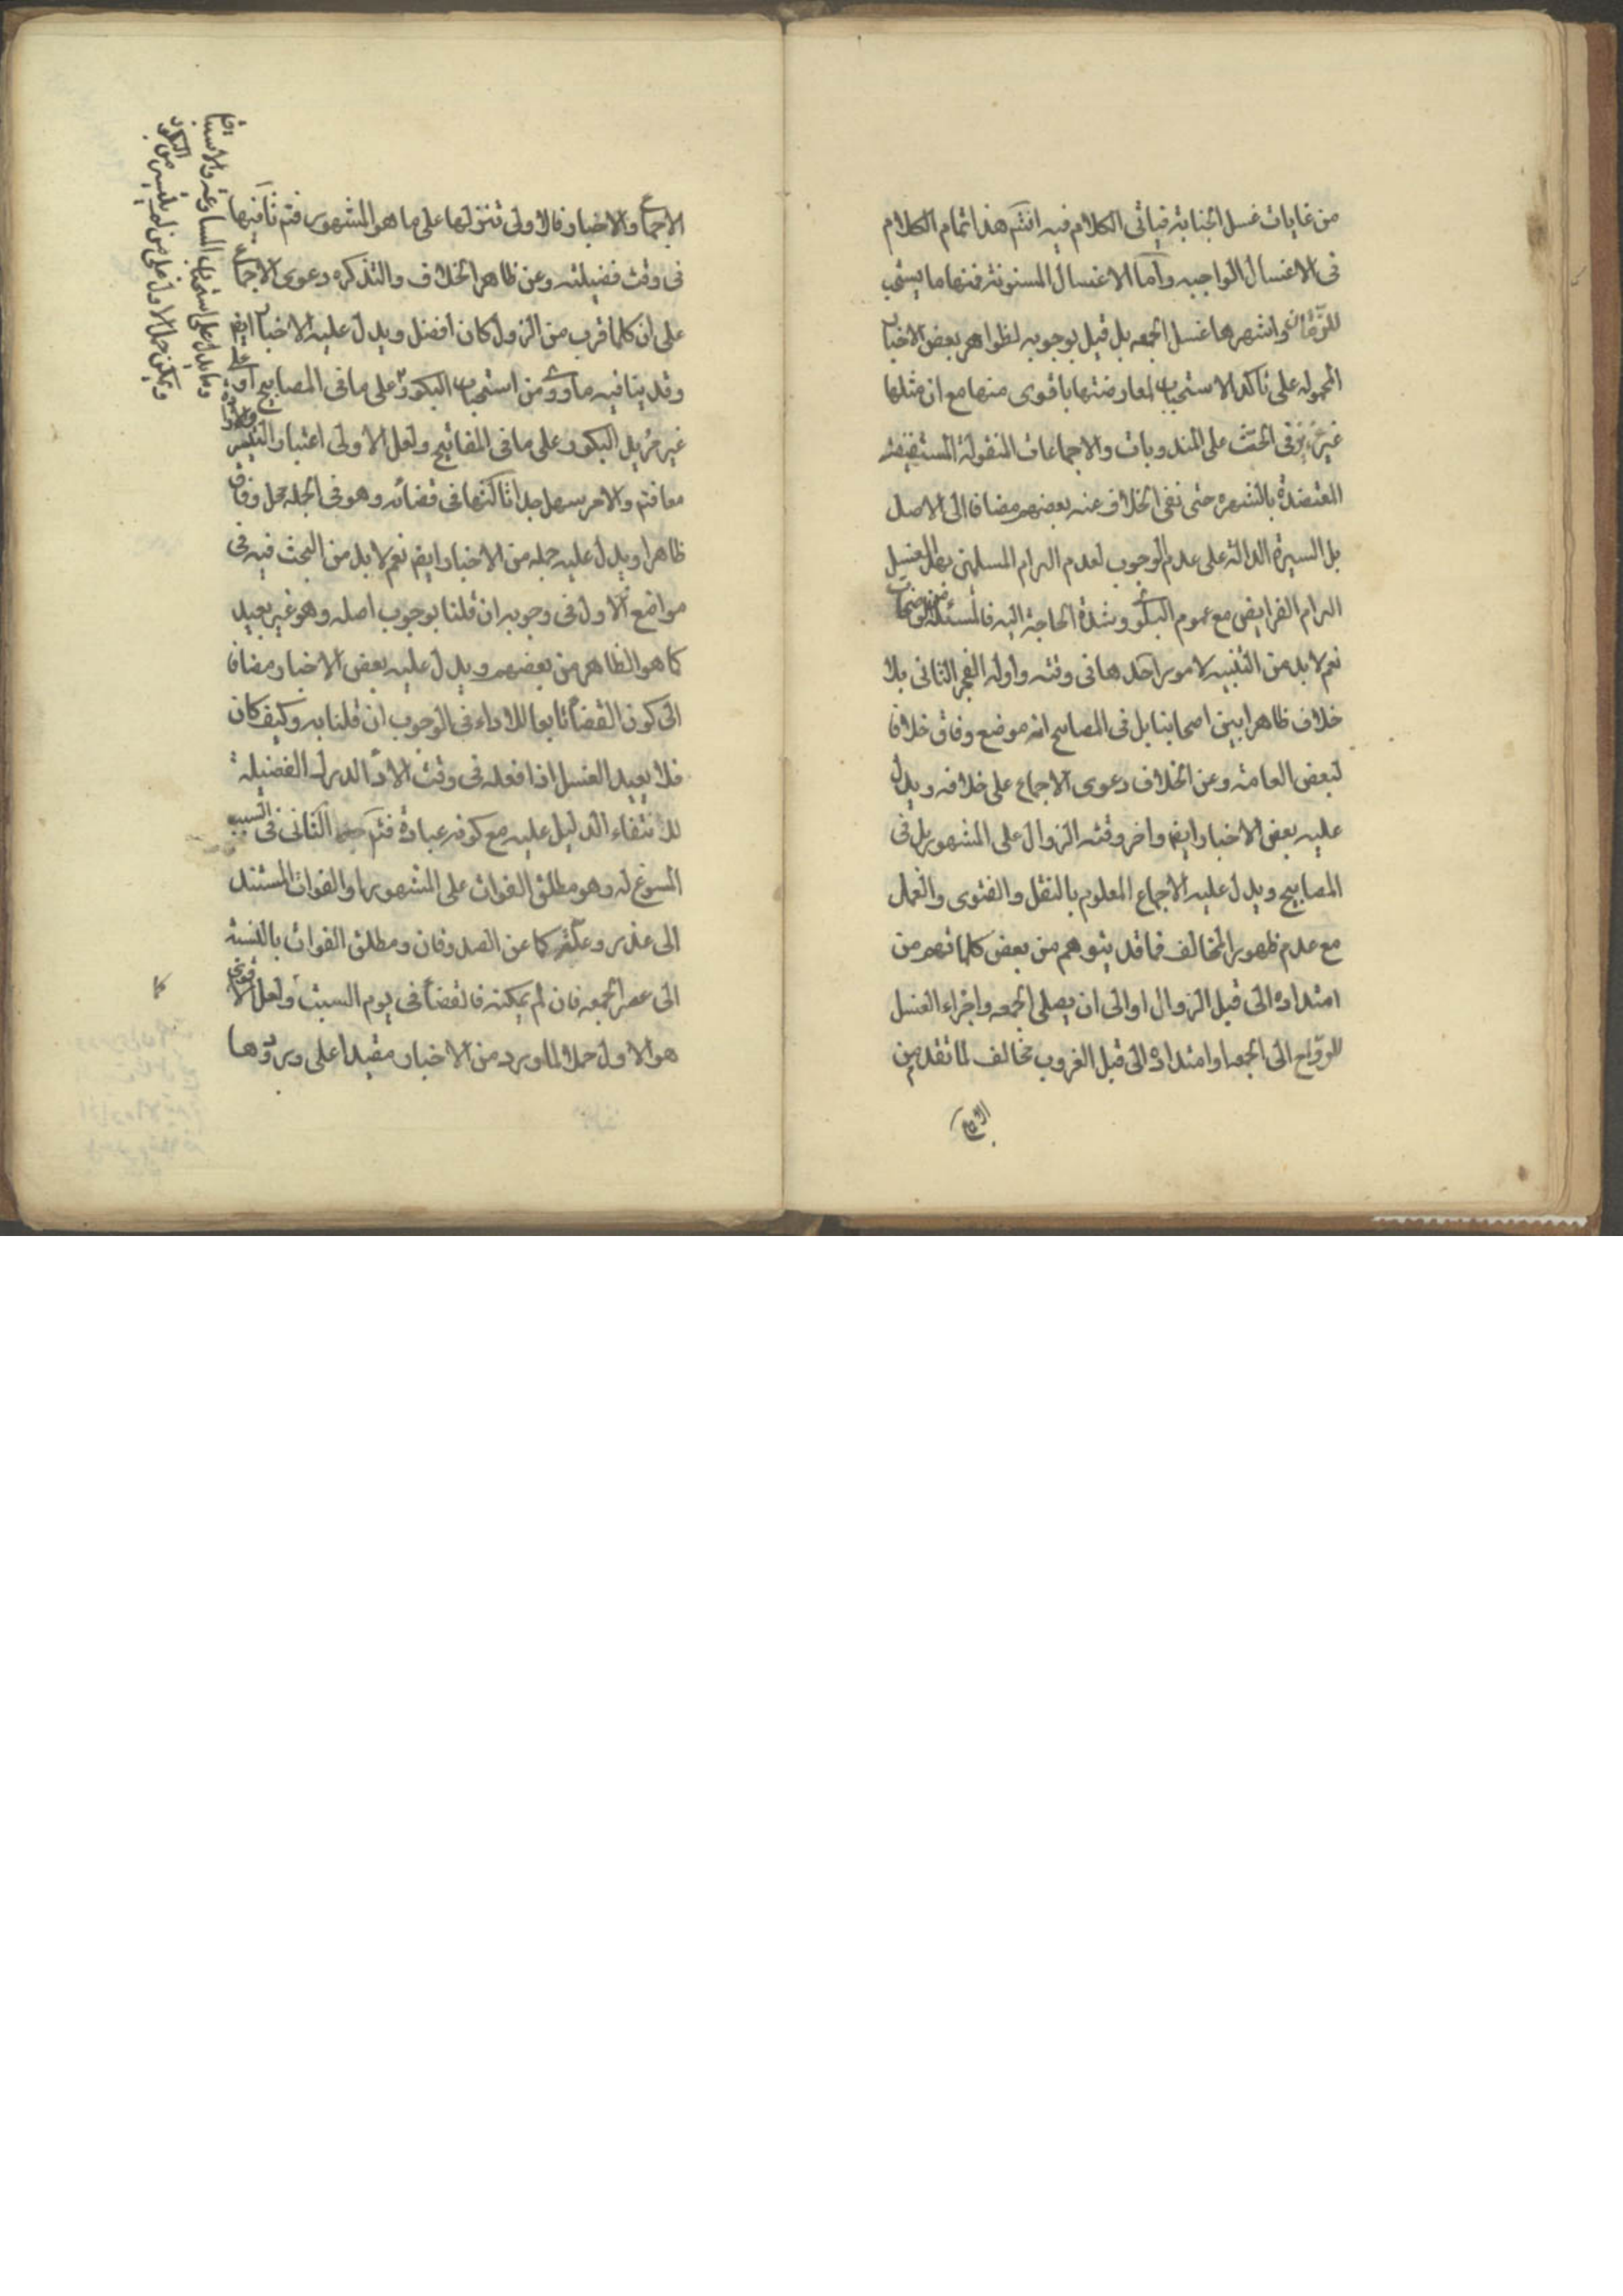 من غايات غسل الجنابة فياتى الكلام فيه انتهى هذا تمام الكلام
فى الاغسال الواجبه واما الاغسال المسنونة فمنها ما يستحب
للوقت وان واشهرها غسل الجمعه بل قيل بوجوبه لظواهر بعض الاخبار
المحموله على تاكد الاستحباب لمعارضتها باقوى منها مع ان مثلها
غير عزيز فى الحث على المندوبات والاجماعات المنقولة المستفيضة
المعتضدة بالشهره حتى نفى الخلاف عنه بعضهم مضافا الى الاصل
بل السيرة الدالة على عدم الوجوب لعدم الزام المسلمين بهذا الغسل
الزام الفرايض مع عموم البلوى وشدة الحاجة اليه فالمسئلة
نعم لا بد من التنبيه لامور احدها فى وقته واوله الفجر الثانى بلا
خلاف ظاهرا بين اصحابنا بل فى المصابيح انه موضع وفاق خلافا
لبعض العامة وعن الخلاف دعوى الاجماع على خلافه ويدل
عليه بعض الاخبار ايضا واخر وقته الزوال على المشهور بل فى
المصابيح ويدل عليه الاجماع المعلوم بالنقل والفتوى والعمل
مع عدم ظهور المخالف فما قد يتوهم من بعض كلماتهم من
امتداده الى قبل الزوال او الى ان يصلى الجمعه واجزاء الغسل
للرواح الى الجمعه او امتداده الى قبل الغروب مخالف لما تقدم من
الاجماع
الاجماع والاخبار فالاولى تنزيلها على ما هو المشهور فتم ثانيها
فى وقت فضيلته وعن ظاهر الخلاف والتذكره دعوى الاجماع
على ان كلما قرب من الزوال كان افضل ويدل عليه الاخبار ايضا
وقد ينافيه ما ورد من استحباب البكور على ما فى المصابيح
غير مزيل البكور على ما فى المفاتيح ولعل الاولى اعتبار التيسر
معا فتم والامر سهل جدا ثالثها فى قضائه وهو فى الجمله محل وفاق
ظاهرا ويدل عليه جمله من الاخبار ايضا نعم لا بد من البحث فيه فى
مواضع الاول فى وجوبه ان قلنا بوجوب اصله وهو غير بعيد
كما هو الظاهر من بعضهم ويدل عليه بعض الاخبار مضافا
الى كون القضاء تابعا للاداء فى الوجوب ان قلنا به وكيف كان
فلا يعيد الغسل اذا فعله فى وقت الاداء لدرك الفضيلة
لانتفاء الدليل عليه مع كونه عبادة فتم الثانى فى السبب
المسوغ له وهو مطلق الفوات على المشهور او الفوات المستند
الى عذر وعلة كما عن الصدوقان ومطلق الفوات بالنسبة
الى عصر الجمعه فان لم يمكنه فالقضاء فى يوم السبت ولعل الاقوى
هو الاول حملا لما ورد من الاخبار مقيدا على ورودها
وما يدل على استحباب المسارعة والاستباق
ويمكن حمل الاول على من لم يتيسر من البكور